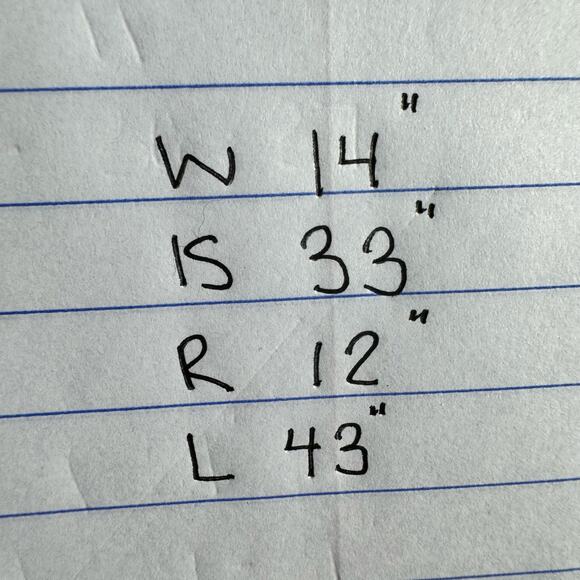 W 14"
IS 33"
R 12"
L 43"